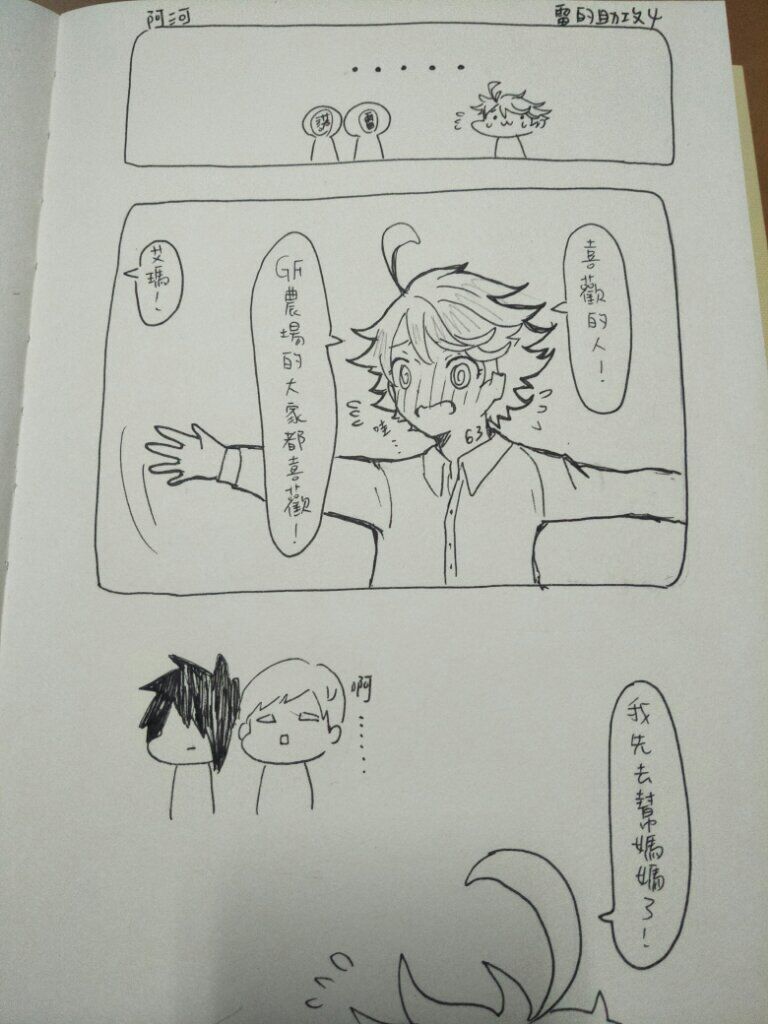 阿河
雷的助攻4
．．．．．
諾
雷
喜歡的人！
GF農場的大家都喜歡！
艾瑪！
哇…
63
啊……
我先去幫媽媽了！